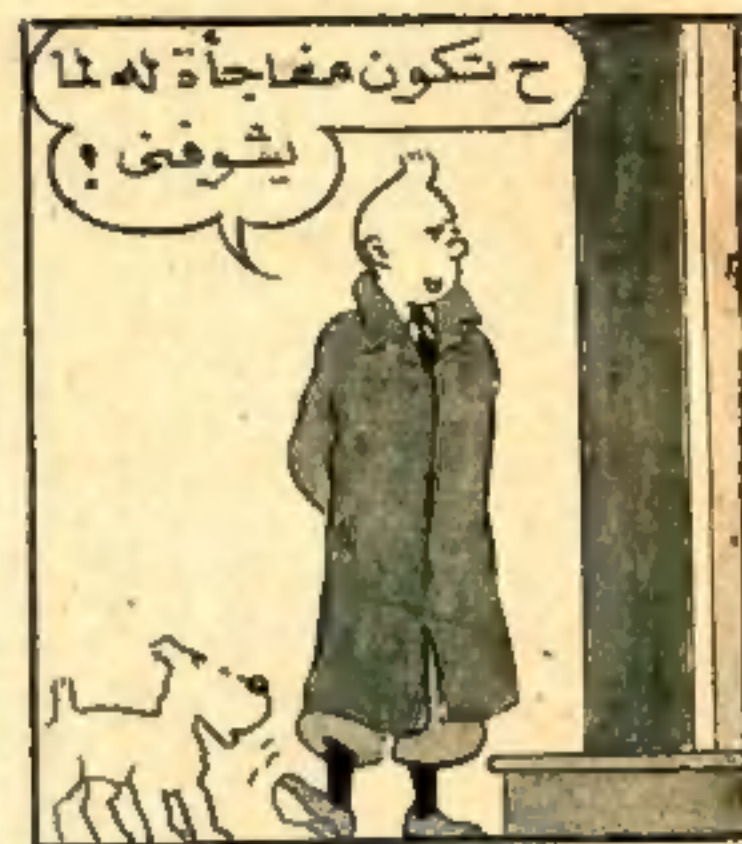 ح تكون مفاجأة له لما
يشوفنى !